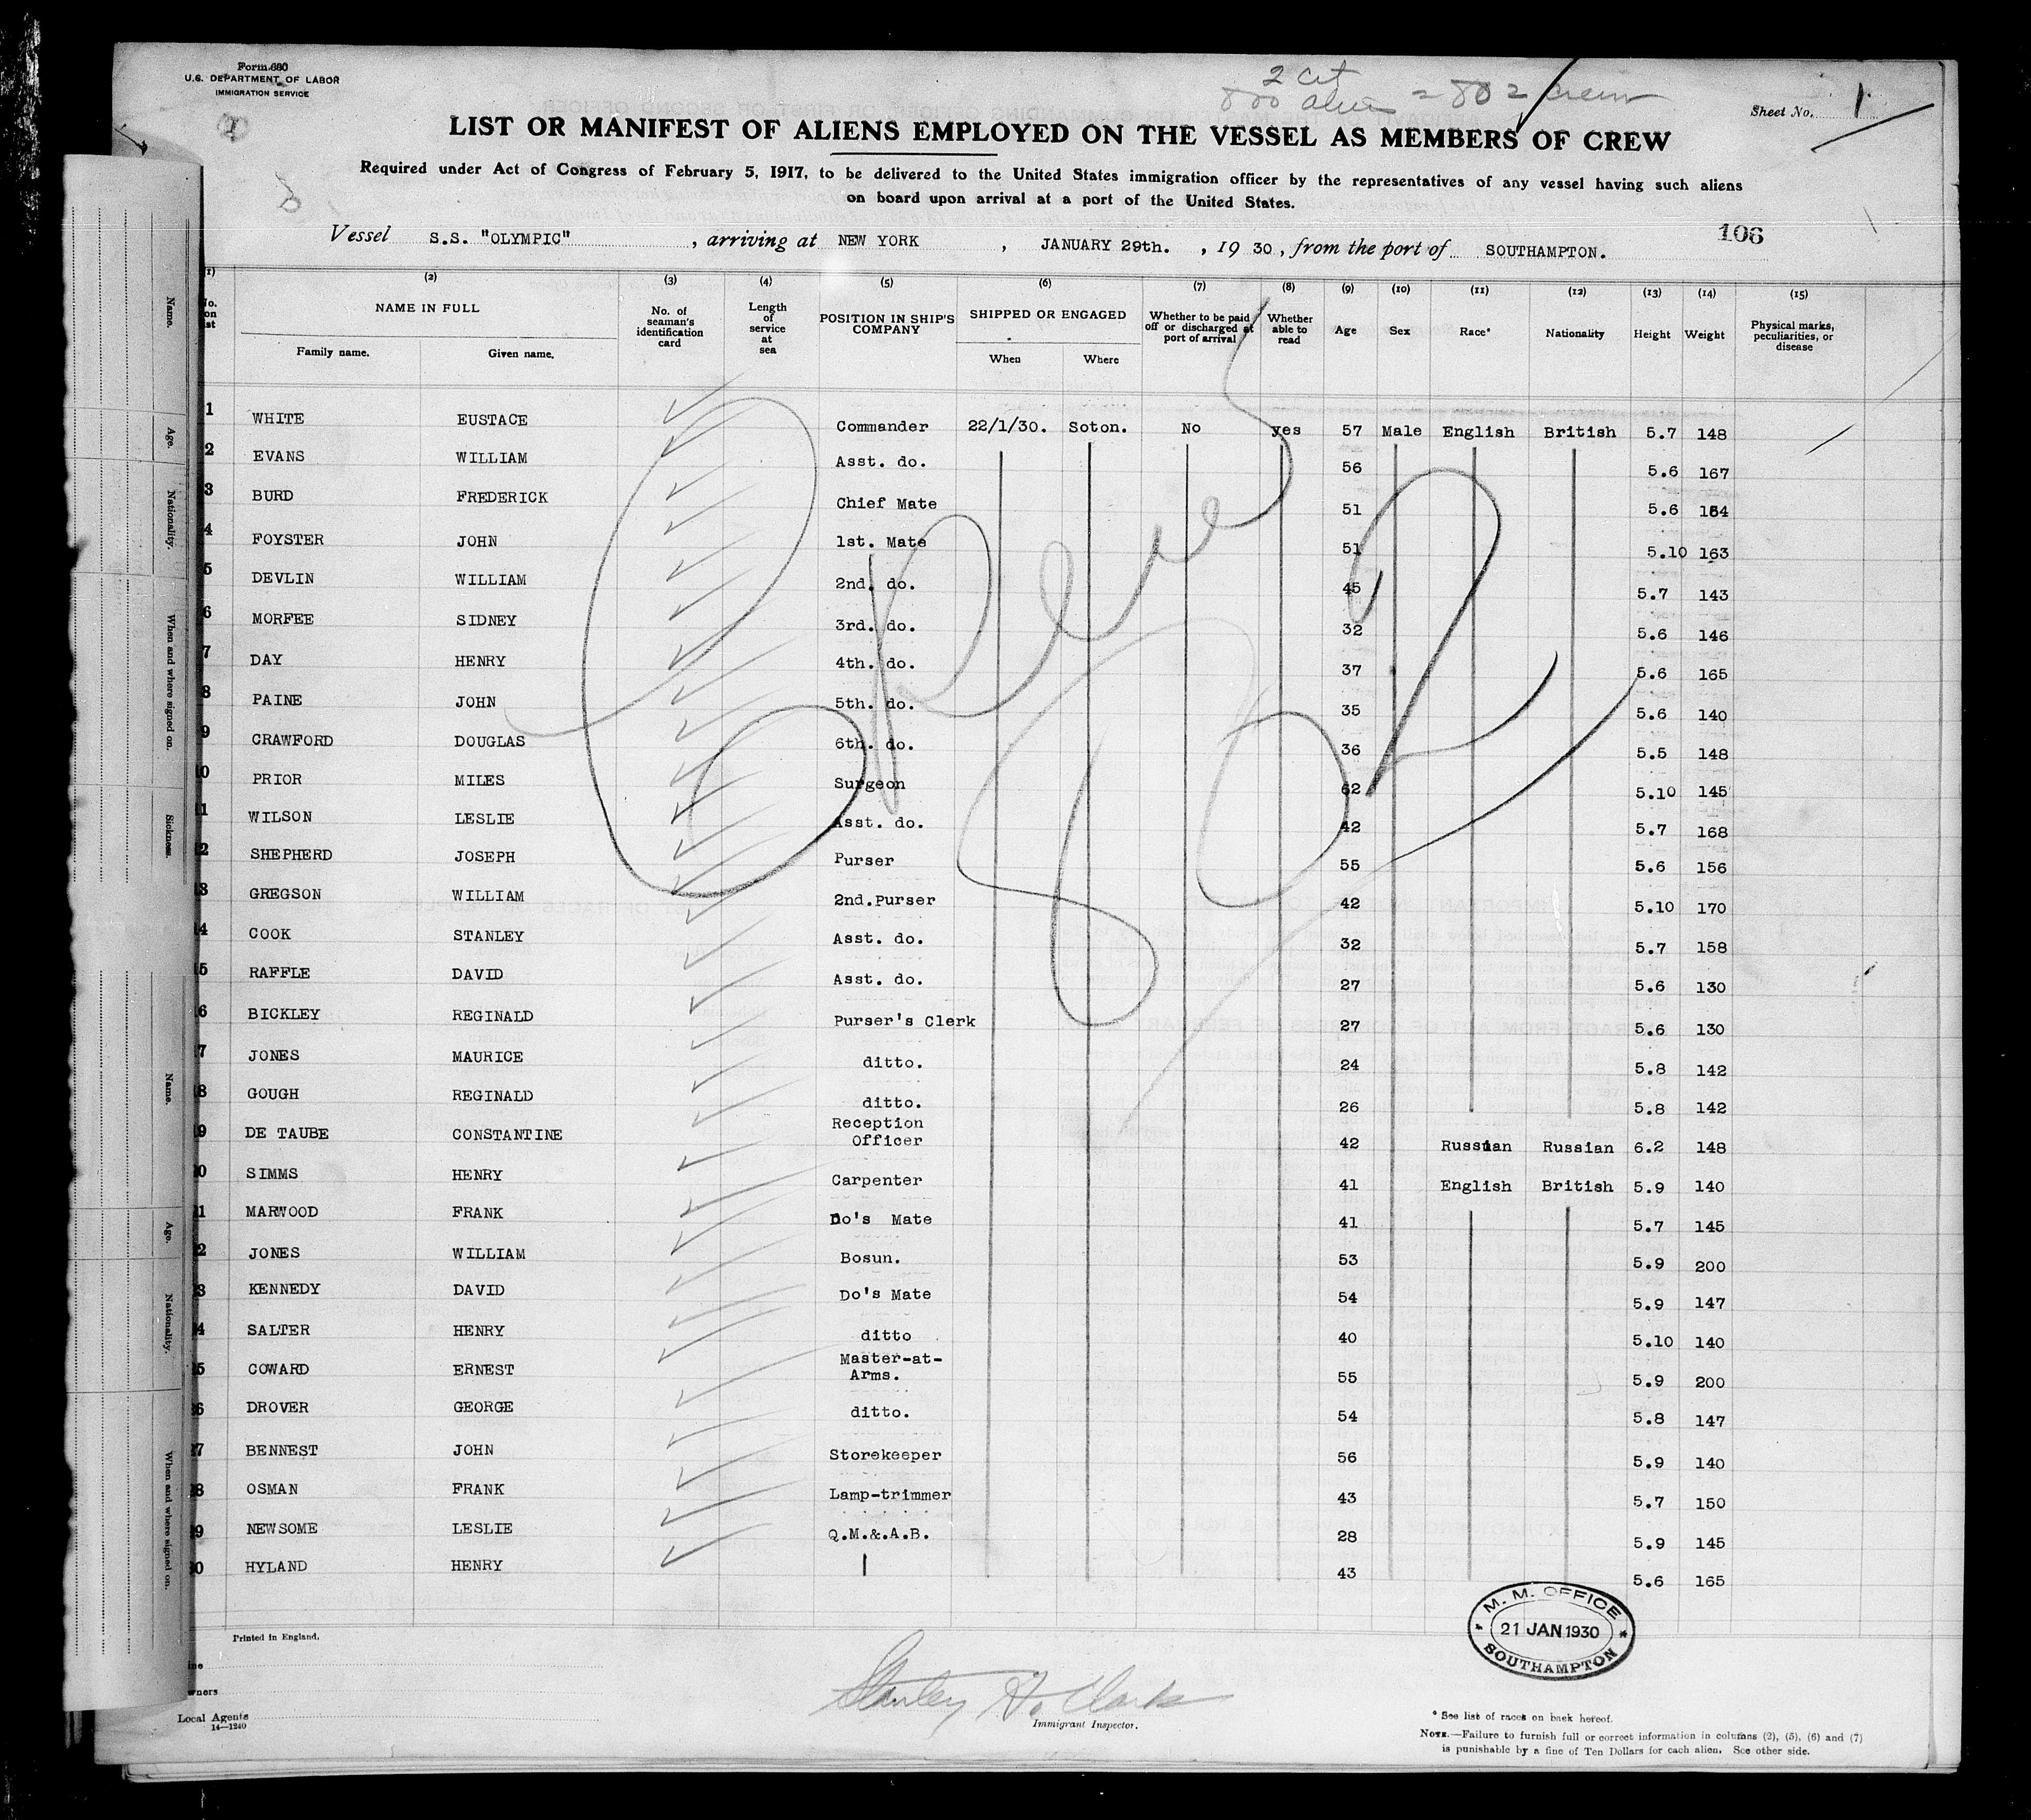 Form 680
U.S. DEPARTMENT OF LABOR
IMMIGRATION SERVICE
2 cit
800 alien = 802 crew
Sheet No. 1
LIST OR MANIFEST OF ALIENS EMPLOYED ON THE VESSEL AS MEMBERS OF CREW
Required under Act of Congress of February 5, 1917, to be delivered to the United States immigration officer by the representatives of any vessel having such aliens
on board upon arrival at a port of the United States.
106
Vessel S.S. "OLYMPIC", arriving at NEW YORK, JANUARY 29th., 1930, from the port of SOUTHAMPTON.
(1) (2) (3) (4) (5) (6) (7) (8) (9) (10) (11) (12) (13) (14) (15)
No. on list
NAME IN FULL
Family name. Given name.
No. of seaman's identification card
Length of service at sea
POSITION IN SHIP'S COMPANY
SHIPPED OR ENGAGED
When Where
Whether to be paid off or discharged at port of arrival
Whether able to read
Age
Sex
Race*
Nationality
Height
Weight
Physical marks, peculiarities, or disease
1 WHITE EUSTACE Commander 22/1/30. Soton. No yes 57 Male English British 5.7 148
2 EVANS WILLIAM Asst. do. 56 5.6 167
3 BURD FREDERICK Chief Mate 51 5.6 154
4 FOYSTER JOHN 1st. Mate 51 5.10 163
5 DEVLIN WILLIAM 2nd. do. 45 5.7 143
6 MORFEE SIDNEY 3rd. do. 32 5.6 146
7 DAY HENRY 4th. do. 37 5.6 165
8 PAINE JOHN 5th. do. 35 5.6 140
9 CRAWFORD DOUGLAS 6th. do. 36 5.5 148
10 PRIOR MILES Surgeon 62 5.10 145
11 WILSON LESLIE Asst. do. 42 5.7 168
12 SHEPHERD JOSEPH Purser 55 5.6 156
13 GREGSON WILLIAM 2nd.Purser 42 5.10 170
14 COOK STANLEY Asst. do. 32 5.7 158
15 RAFFLE DAVID Asst. do. 27 5.6 130
16 BICKLEY REGINALD Purser's Clerk 27 5.6 130
17 JONES MAURICE ditto. 24 5.8 142
18 GOUGH REGINALD ditto. 26 5.8 142
19 DE TAUBE CONSTANTINE Reception Officer 42 Russian Russian 6.2 148
20 SIMMS HENRY Carpenter 41 English British 5.9 140
21 MARWOOD FRANK Do's Mate 41 5.7 145
22 JONES WILLIAM Bosun. 53 5.9 200
23 KENNEDY DAVID Do's Mate 54 5.9 147
24 SALTER HENRY ditto 40 5.10 140
25 COWARD ERNEST Master-at-Arms. 55 5.9 200
26 DROVER GEORGE ditto. 54 5.8 147
27 BENNEST JOHN Storekeeper 56 5.9 140
28 OSMAN FRANK Lamp-trimmer 43 5.7 150
29 NEWSOME LESLIE Q.M.&.A.B. 28 5.9 145
30 HYLAND HENRY 43 5.6 165
M. M. OFFICE
21 JAN 1930
SOUTHAMPTON
Printed in England.
Local Agents
14—1240
Stanley H. Clark
Immigrant Inspector.
* See list of races on back hereof.
NOTE.—Failure to furnish full or correct information in columns (2), (5), (6) and (7)
is punishable by a fine of Ten Dollars for each alien. See other side.
Name.
Age.
Nationality.
When and where signed on.
Sickness.
Name.
Age.
Nationality.
When and where signed on.